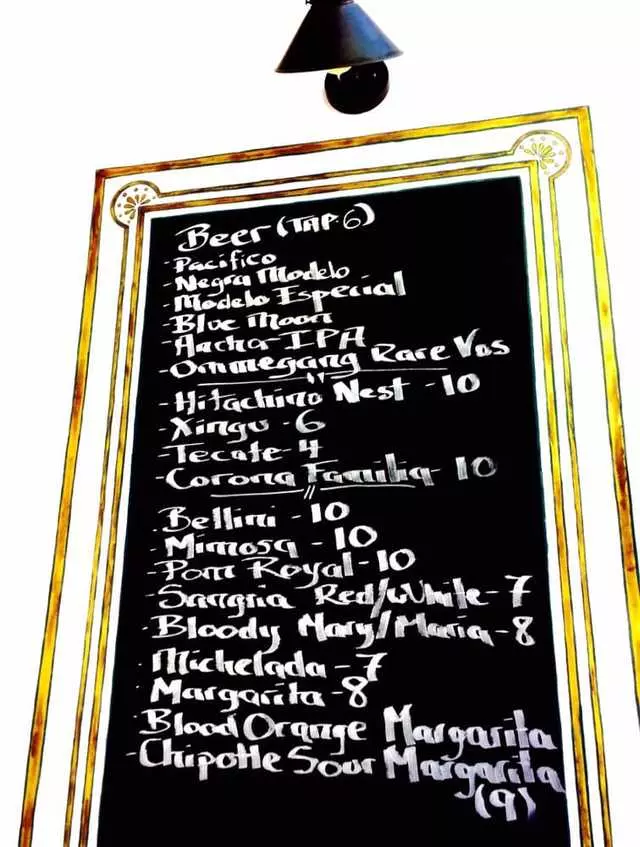 Beer (TAP 6)
- Pacifico
- Negra Modelo
- Modelo Especial
- Blue Moon
- Anchor IPA
- Ommegang Rare Vos
- Hitachino Nest - 10
- Xingu - 6
- Tecate - 4
- Corona Familia - 10
- Bellini - 10
- Mimosa - 10
- Pom Royal - 10
- Sangria Red/White - 7
- Bloody Mary/Maria - 8
- Michelada - 7
- Margarita - 8
- Blood Orange Margarita
- Chipotle Sour Margarita
(9)